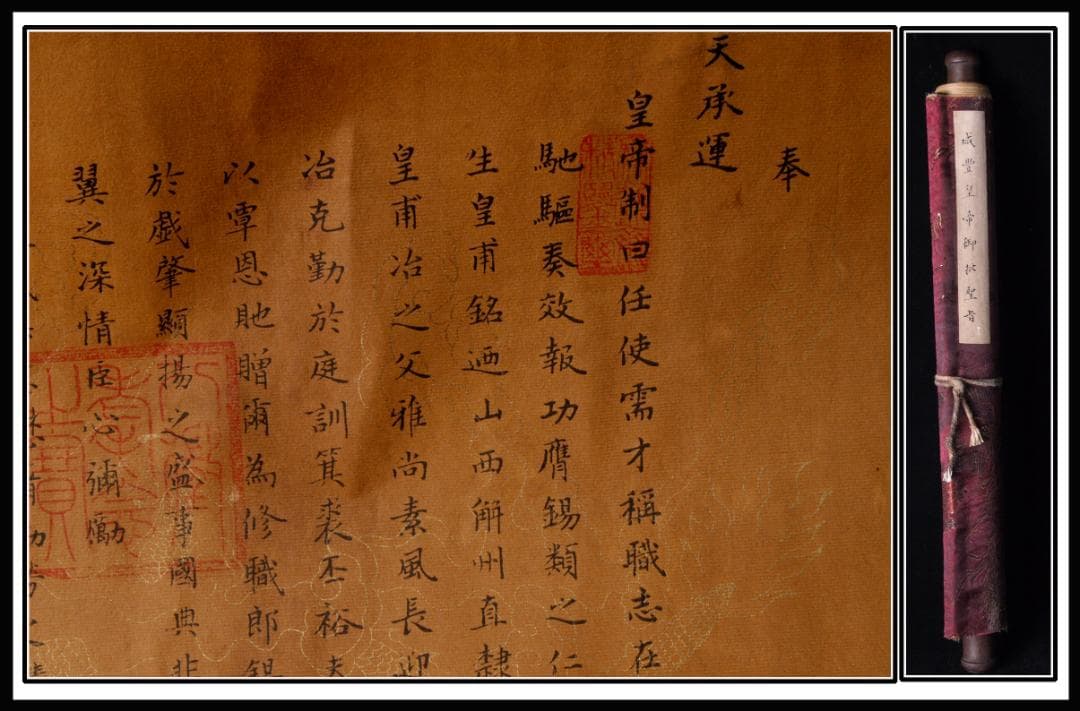 奉
天承運
皇帝制曰任使需才稱職志在
馳驅奏效報功膺錫類之仁
生皇甫銘迺山西解州直隸
皇甫冶之父雅尚素風長迎
冶克勤於庭訓箕裘丕裕
以覃恩貤贈爾為修職郎錫
於戲肇顯揚之盛事國典非
翼之深情臣心彌勵
咸豐皇帝御批聖旨